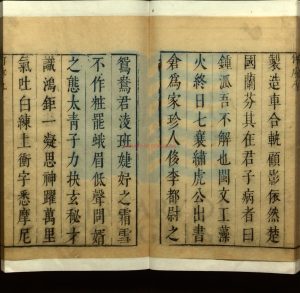 製造車合軌顧影依然楚
國蘭芬其在君子病者曰
鍾瓠吾不解也閩文工藻
火終日七襄繡虎公出書
倉爲家珍人侈李都尉之
鴛鴦君淩班婕妤之霜雪
不作粧罷蛾眉低聲問婿
之態太青子力抉玄秘才
識鴻年一凝思神躍萬里
氣吐白練上衝字悉摩尼